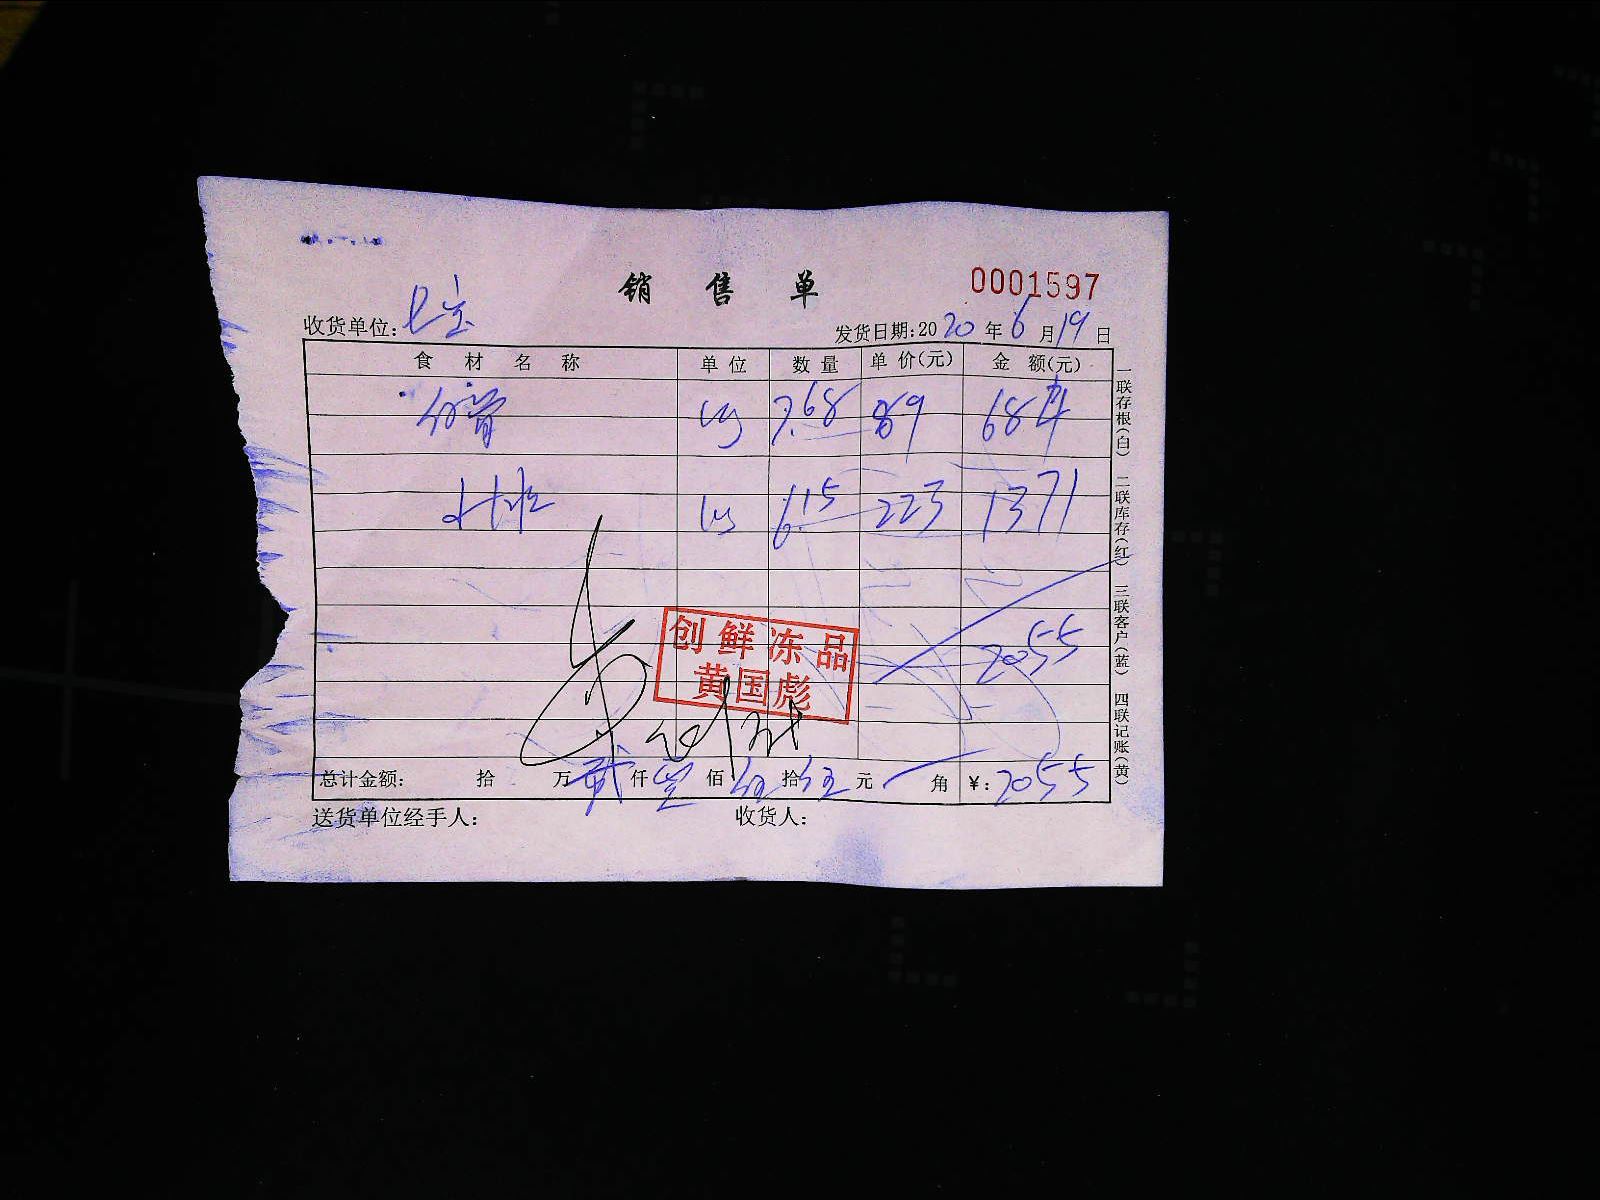 销售单
0001597
收货单位: 七宝
发货日期:2020年6月19日
食材名称 单位 数量 单价(元) 金额(元)
kg 7.68 89 684
kg 6.15 223 1371
2055
创鲜冻品
黄国彪
总计金额: 拾 万贰仟零佰伍拾伍元 角 ¥:2055
送货单位经手人: 收货人:
一联存根(白) 二联库存(红) 三联客户(蓝) 四联记账(黄)